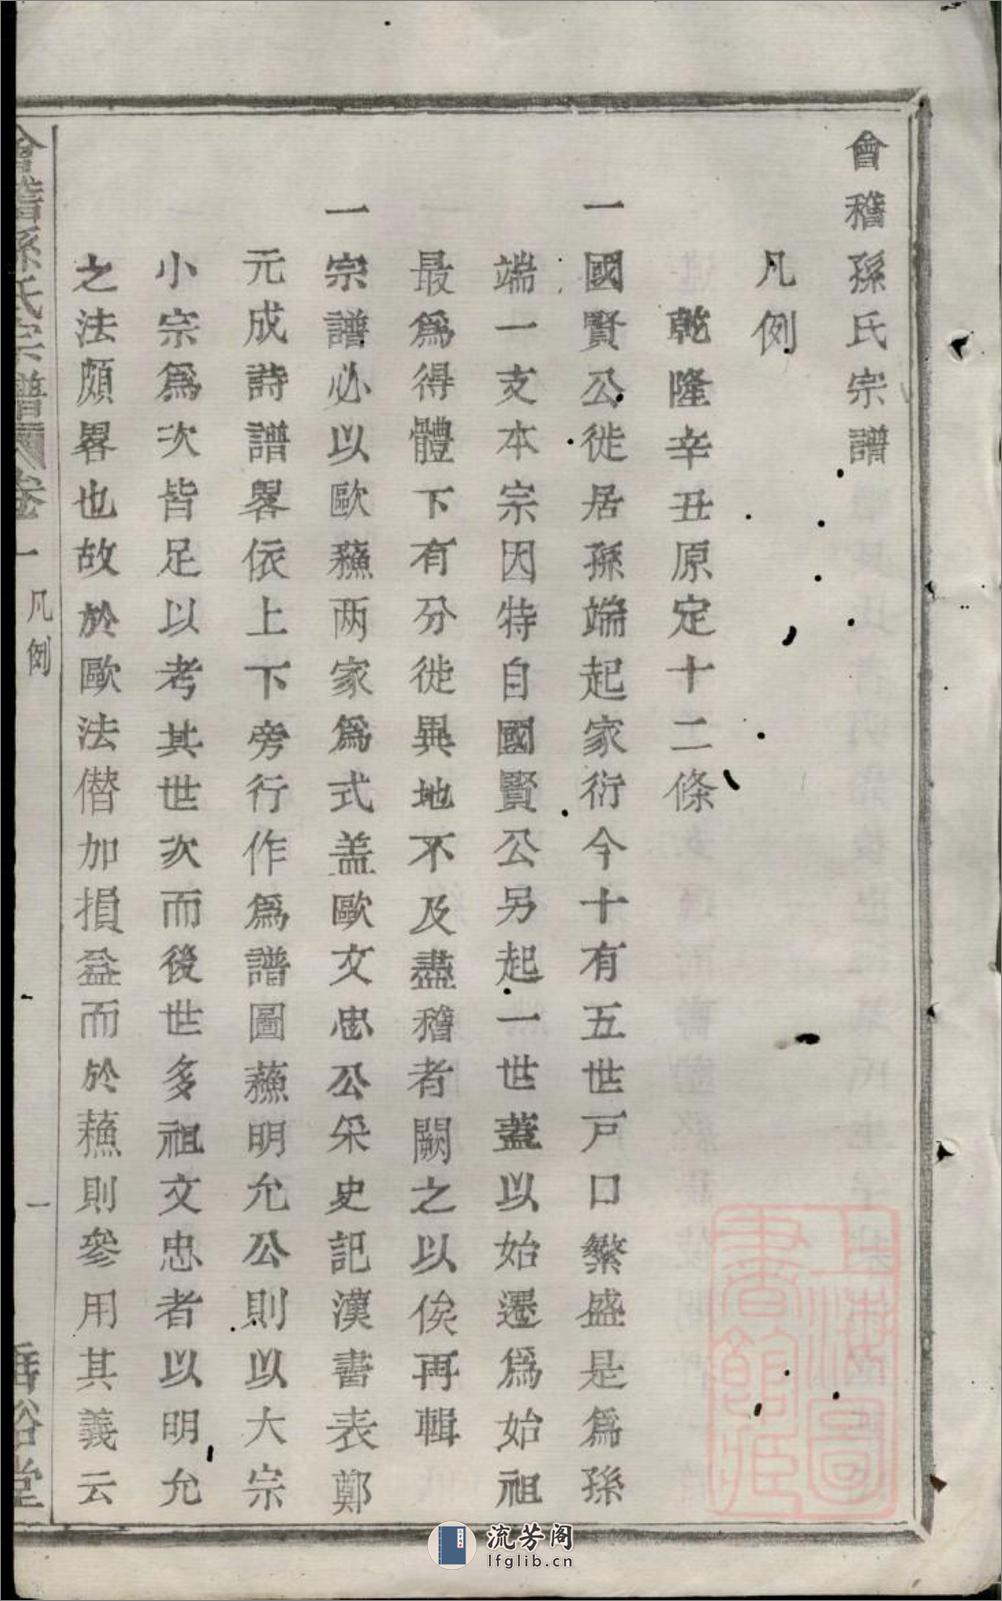 會稽孫氏宗譜
凡例
乾隆辛丑原定十二條
一國賢公徙居孫端起家衍今十有五世戸口繁盛是爲孫
端一支本宗因特自國賢公另起一世蓋以始遷爲始祖
最爲得體下有分徙異地不及盡稽者闕之以俟再輯
一宗譜必以歐蘓两家爲式盖歐文忠公采史記漢書表鄭
元成詩譜畧依上下旁行作爲譜圖蘓明允公則以大宗
小宗爲次皆足以考其世次而後世多祖文忠者以明允
之法頗畧也故於歐法僣加損益而於蘓則參用其義云
會稽孫氏宗譜 卷一 凡例 一 垂裕堂
上海圖書館藏
流芳阁
lfglib.cn